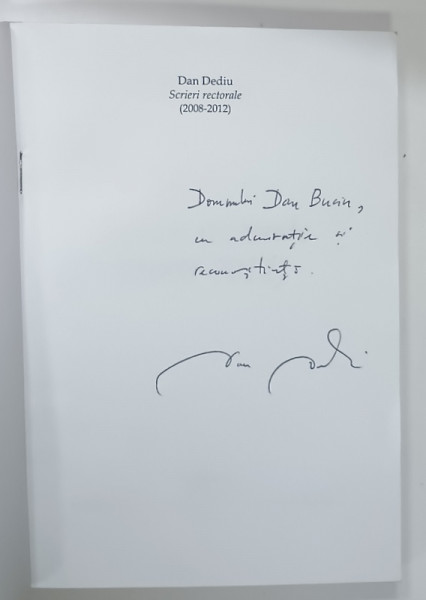 Dan Dediu
Scrieri rectorale
(2008-2012)
Domnului Dan Buciu,
cu admirație și
recunoștință.
Dan Dediu